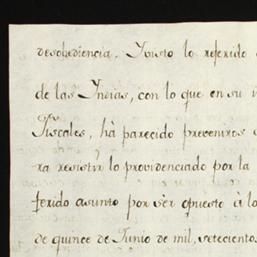 desobediencia. Visto lo referido
de las Indias, con lo que en su
Fiscales, hà parecido preveniros
ra resistir lo providenciado por la
ferido asunto por ser opuesto à lo
de quince de Junio de mil, setecientos